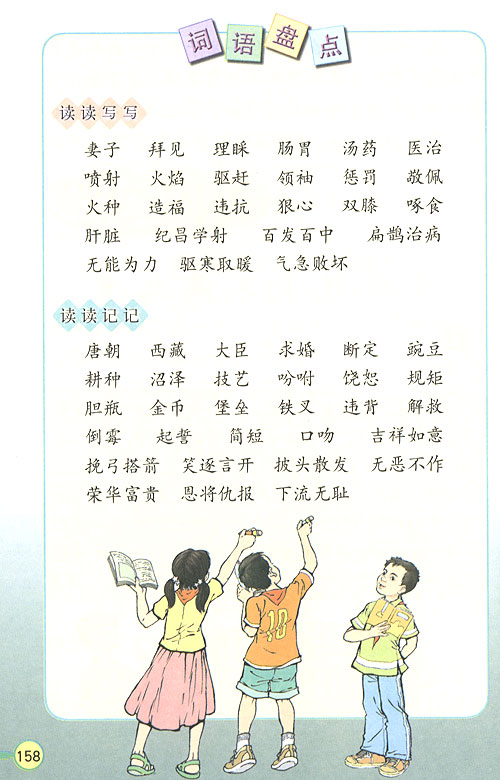 词语盘点
读读写写
妻子 拜见 理睬 肠胃 汤药 医治
喷射 火焰 驱赶 领袖 惩罚 敬佩
火种 造福 违抗 狠心 双膝 啄食
肝脏 纪昌学射 百发百中 扁鹊治病
无能为力 驱寒取暖 气急败坏
读读记记
唐朝 西藏 大臣 求婚 断定 豌豆
耕种 沼泽 技艺 吩咐 饶恕 规矩
胆瓶 金币 堡垒 铁叉 违背 解救
倒霉 起誓 简短 口吻 吉祥如意
挽弓搭箭 笑逐言开 披头散发 无恶不作
荣华富贵 恩将仇报 下流无耻
10
158